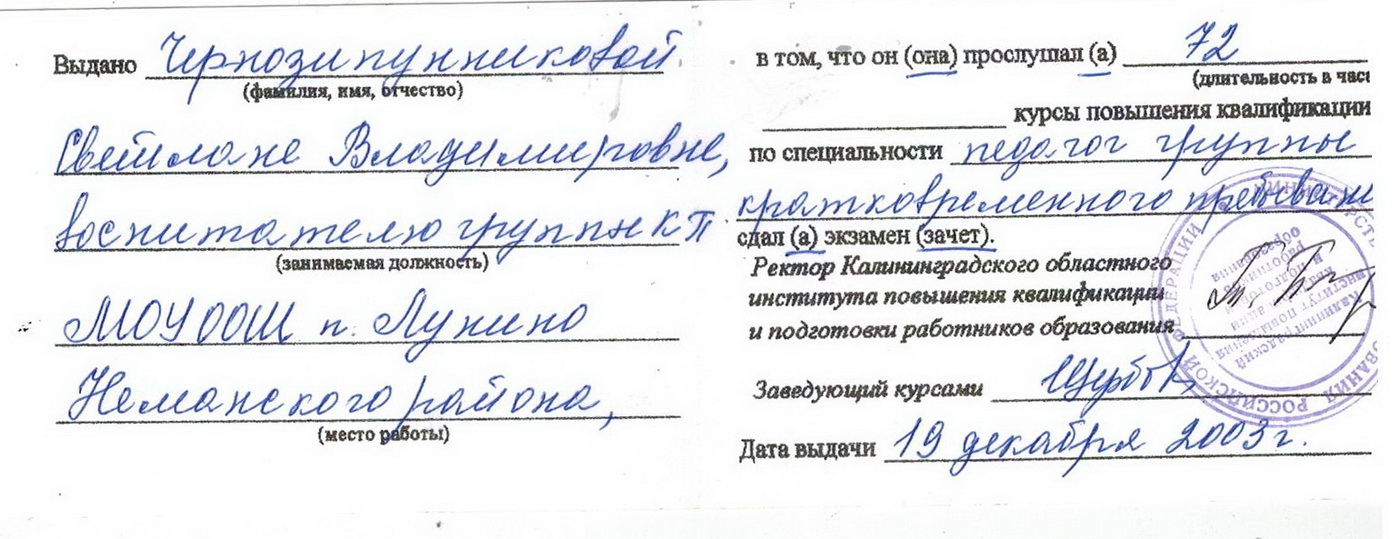 Выдано Чернозипунниковой
(фамилия, имя, отчество)
Светлане Владимировне,
воспитателю группы КП
(занимаемая должность)
МОУООШ п. Лунино
Неманского района,
(место работы)
в том, что он (она) прослушал (а) 72
(длительность в час
курсы повышения квалификации
по специальности педагог группы
кратковременного пребывани
сдал (а) экзамен (зачет).
Ректор Калининградского областного
института повышения квалификации
и подготовки работников образования
Заведующий курсами
Дата выдачи 19 декабря 2003 г.